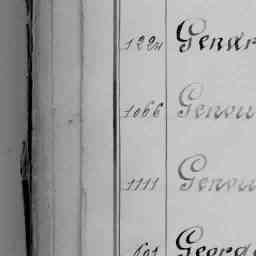 1224 Gendr
1066 Genou
1111 Genou
601 Georg